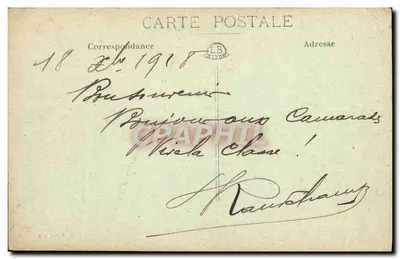 CARTE POSTALE
Correspondance
LB
Adresse
18 Xbre 1918
Bon souvenir
Bonjour aux Camarades
Vive la Classe !